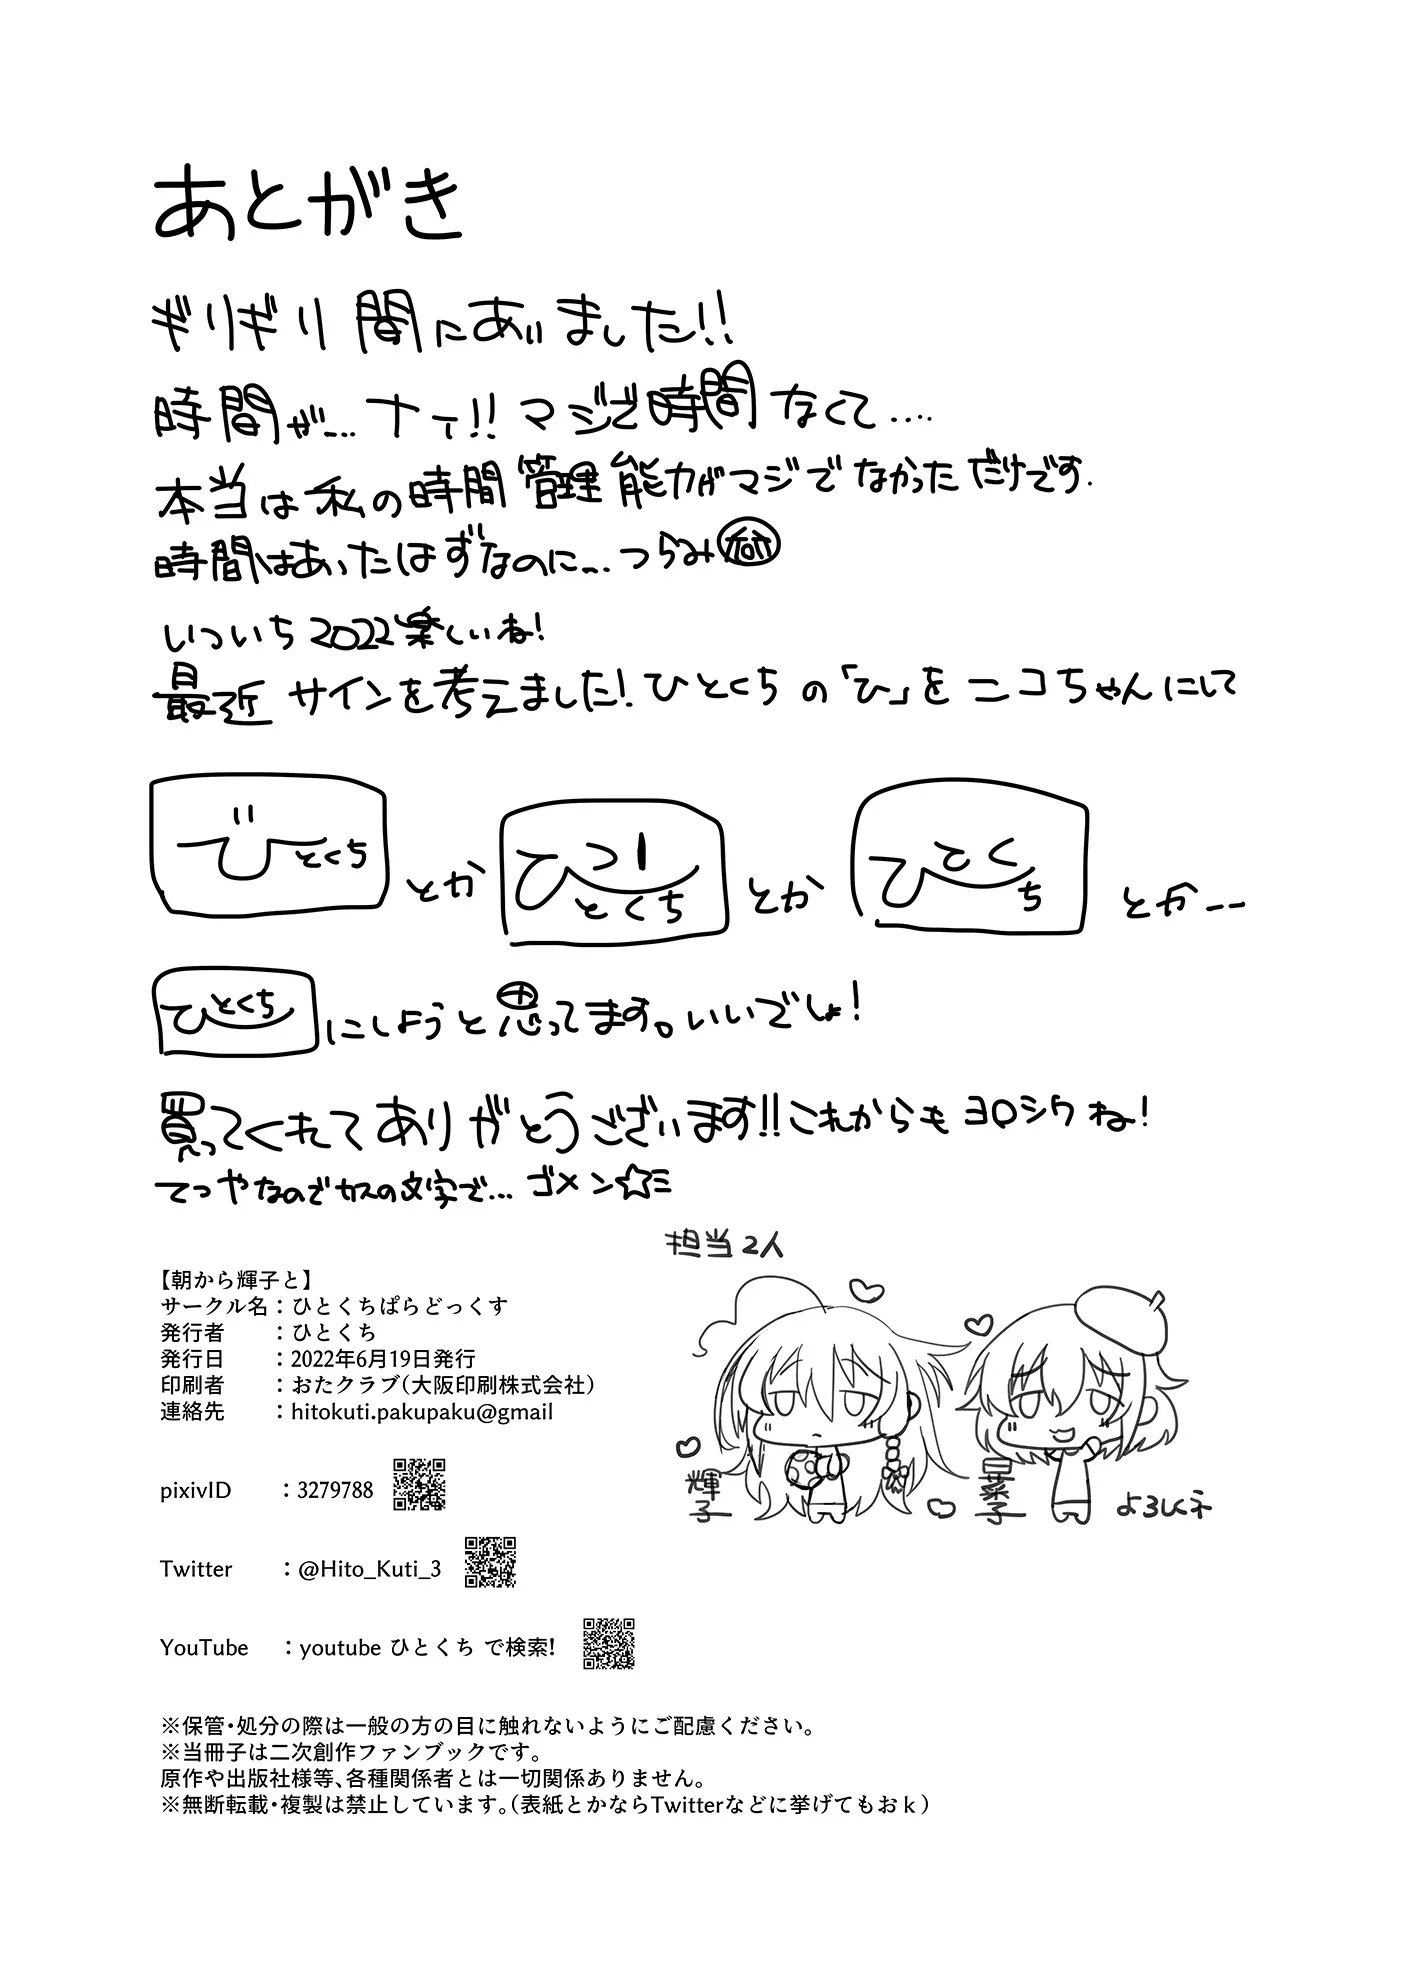 あとがき
ギリギリ間にあいました!!
時間が…ナイ!!マジで時間なくて….
本当は私の時間管理能力がマジでなかっただけです.
時間はあいたはずなのに…つらみ
いついち2022楽しいね!
最近サインを考えました!ひとくちの「ひ」をニコちゃんにして
ひとくち
とか
ひとくち
とか
ひとくち
とか--
ひとくち
にしようと思ってます。いいでしょ!
買ってくれてありがとうございます!!これからもヨロシクね!
てつやなのでカスの文字で…ゴメン☆ミ
担当2人
輝子
星菜子
よろしくネ
【朝から輝子と】
サークル名：ひとくちぱらどっくす
発行者：ひとくち
発行日：2022年6月19日発行
印刷者：おたクラブ（大阪印刷株式会社）
連絡先：hitokuti.pakupaku@gmail
pixivID：3279788
Twitter：@Hito_Kuti_3
YouTube：youtube ひとくち で検索!
※保管・処分の際は一般の方の目に触れないようにご配慮ください。
※当冊子は二次創作ファンブックです。
原作や出版社様等、各種関係者とは一切関係ありません。
※無断転載・複製は禁止しています。（表紙とかならTwitterなどに挙げてもおｋ）